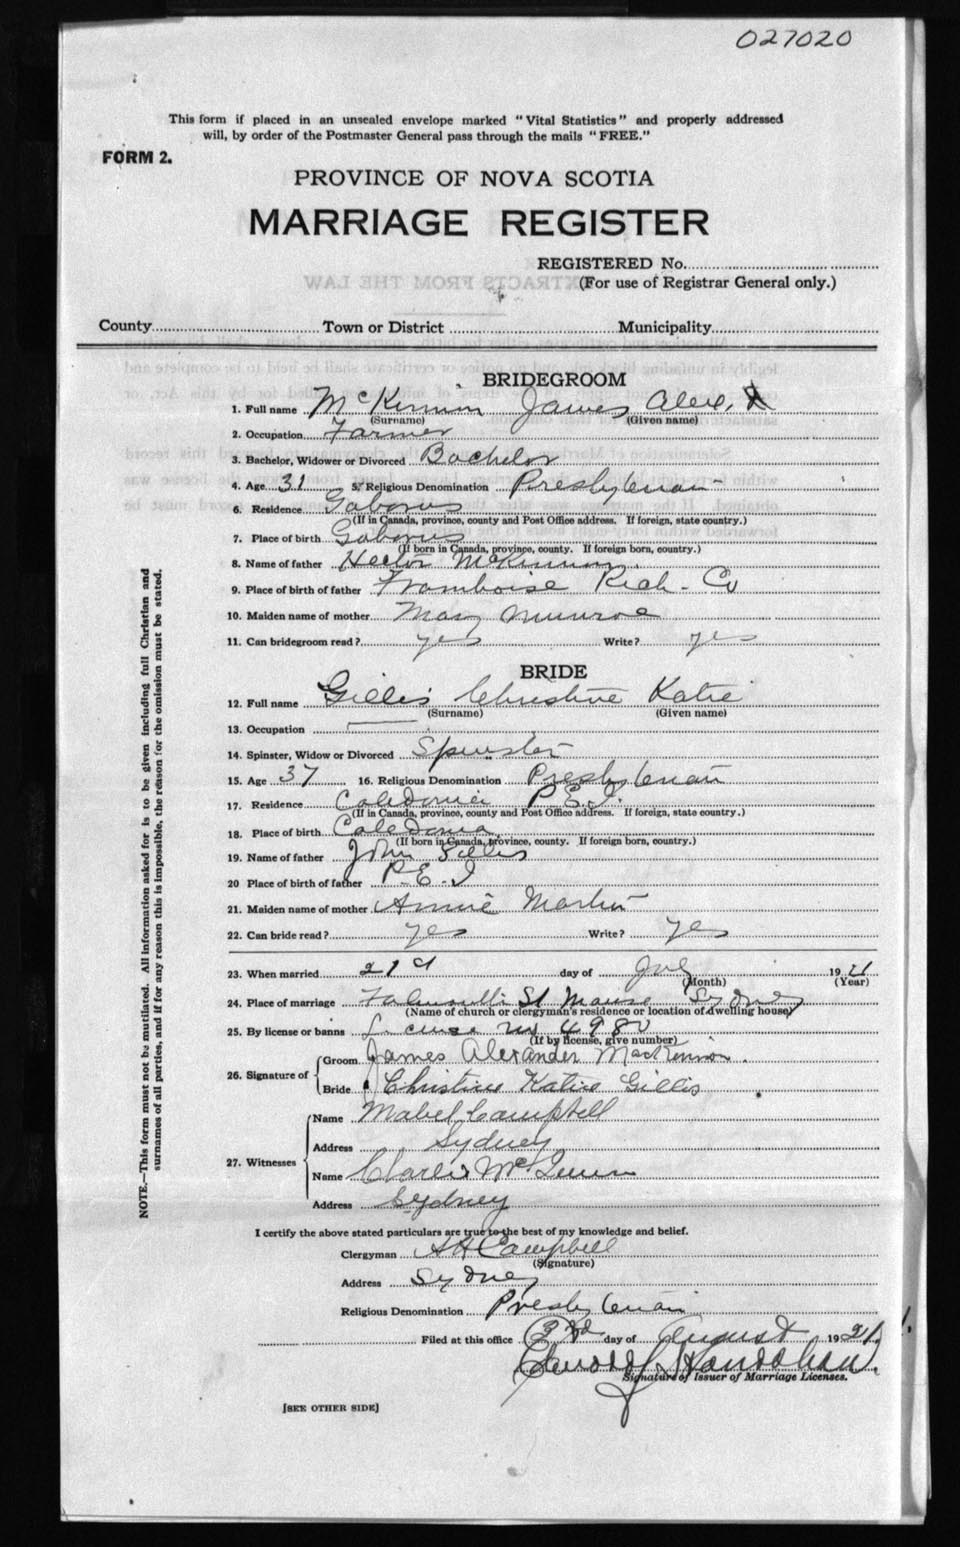 027020
This form if placed in an unsealed envelope marked "Vital Statistics" and properly addressed
will, by order of the Postmaster General pass through the mails "FREE."
FORM 2.
PROVINCE OF NOVA SCOTIA
MARRIAGE REGISTER
REGISTERED No.
(For use of Registrar General only.)
EXTRACTS FROM THE LAW
County Town or District Municipality
BRIDEGROOM
1. Full name McKinnon James Alex.
(Surname) (Given name)
2. Occupation Farmer
3. Bachelor, Widower or Divorced Bachelor
4. Age 31 5. Religious Denomination Presbyterian
6. Residence Gabarus
(If in Canada, province, county and Post Office address. If foreign, state country.)
7. Place of birth Gabarus
(If born in Canada, province, county. If foreign born, country.)
8. Name of father Hector McKinnon
9. Place of birth of father Framboise Rich-Co
10. Maiden name of mother Mary Munroe
11. Can bridegroom read? yes Write? yes
BRIDE
12. Full name Gillis Christine Katie
(Surname) (Given name)
13. Occupation
14. Spinster, Widow or Divorced Spinster
15. Age 37 16. Religious Denomination Presbyterian
17. Residence Caledonia P.E.I.
(If in Canada, province, county and Post Office address. If foreign, state country.)
18. Place of birth Caledonia
(If born in Canada, province, county. If foreign born, country.)
19. Name of father John Gillis
20 Place of birth of father P.E.I
21. Maiden name of mother Annie Martin
22. Can bride read? yes Write? yes
23. When married 21 day of July 1921
(Month) (Year)
24. Place of marriage St Manse Sydney
(Name of church or clergyman's residence or location of dwelling house)
25. By license or banns License No 4980
(If by license, give number)
26. Signature of Groom James Alexander MacKinnon.
Bride Christine Katie Gillis
27. Witnesses Name Mabel Campbell
Address Sydney
Name Charles
Address Sydney
I certify the above stated particulars are true to the best of my knowledge and belief.
Clergyman A H Campbell
(Signature)
Address Sydney
Religious Denomination Presbyterian
Filed at this office 3rd day of August 1921.
Signature of Issuer of Marriage Licenses.
[SEE OTHER SIDE]
NOTE.—This form must not be mutilated. All information asked for is to be given including full Christian and
surnames of all parties, and if for any reason this is impossible, the reason for the omission must be stated.